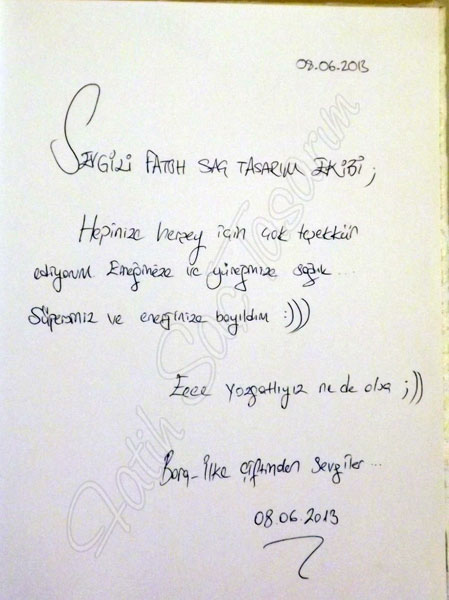 08.06.2013
SEVGİLİ FATİH SAÇ TASARIM EKİBİ;
Hepinize herşey için çok teşekkür
ediyorum Emeğinize ve yüreğinize sağlık...
Süpersiniz ve enerjinize bayıldım :)))
Eeee yozgatlıyız ne de olsa ;))
Bora-İlke çiftinden sevgiler...
08.06.2013
Fatih Saç Tasarım